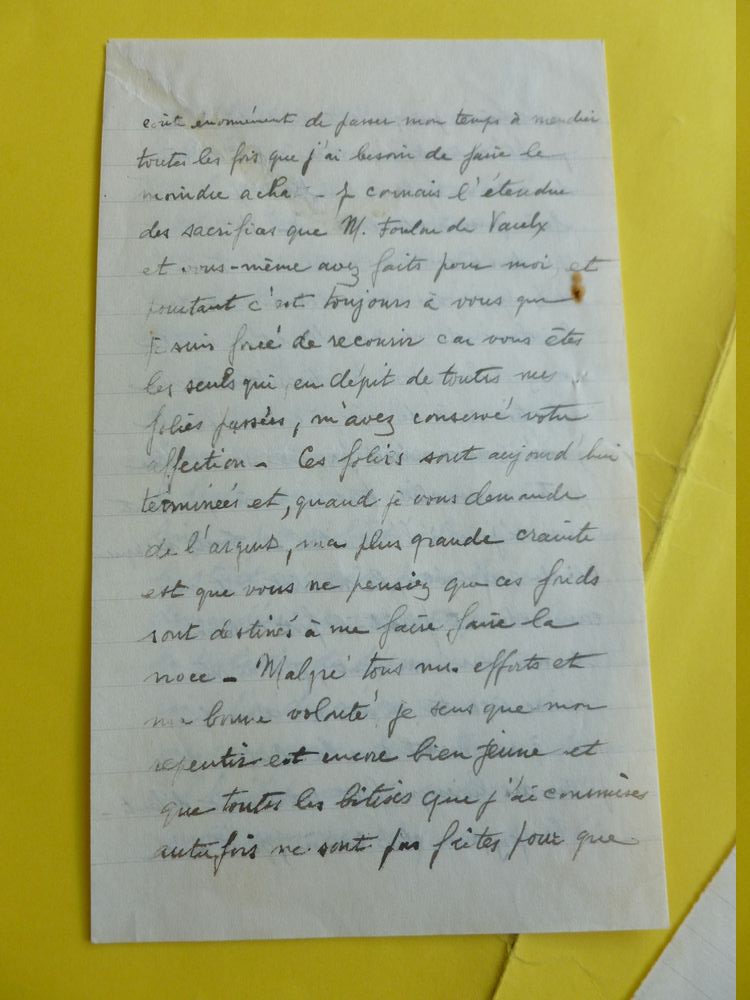 coûte énormément de passer mon temps à mendier
toutes les fois que j'ai besoin de faire le
moindre achat - Je connais l'étendue
des sacrifices que M. Foulon de Vaulx
et vous-même avez faits pour moi et
pourtant c'est toujours à vous que
je suis forcé de recourir car vous êtes
les seuls qui, en dépit de toutes mes
folies passées, m'avez conservé votre
affection - Ces folies sont aujourd'hui
terminées et, quand je vous demande
de l'argent, ma plus grande crainte
est que vous ne pensiez que ces fonds
sont destinés à me faire faire la
noce - Malgré tous mes efforts et
ma bonne volonté je sens que mon
repentir est encore bien jeune et
que toutes les bêtises que j'ai commises
autrefois ne sont pas faites pour que